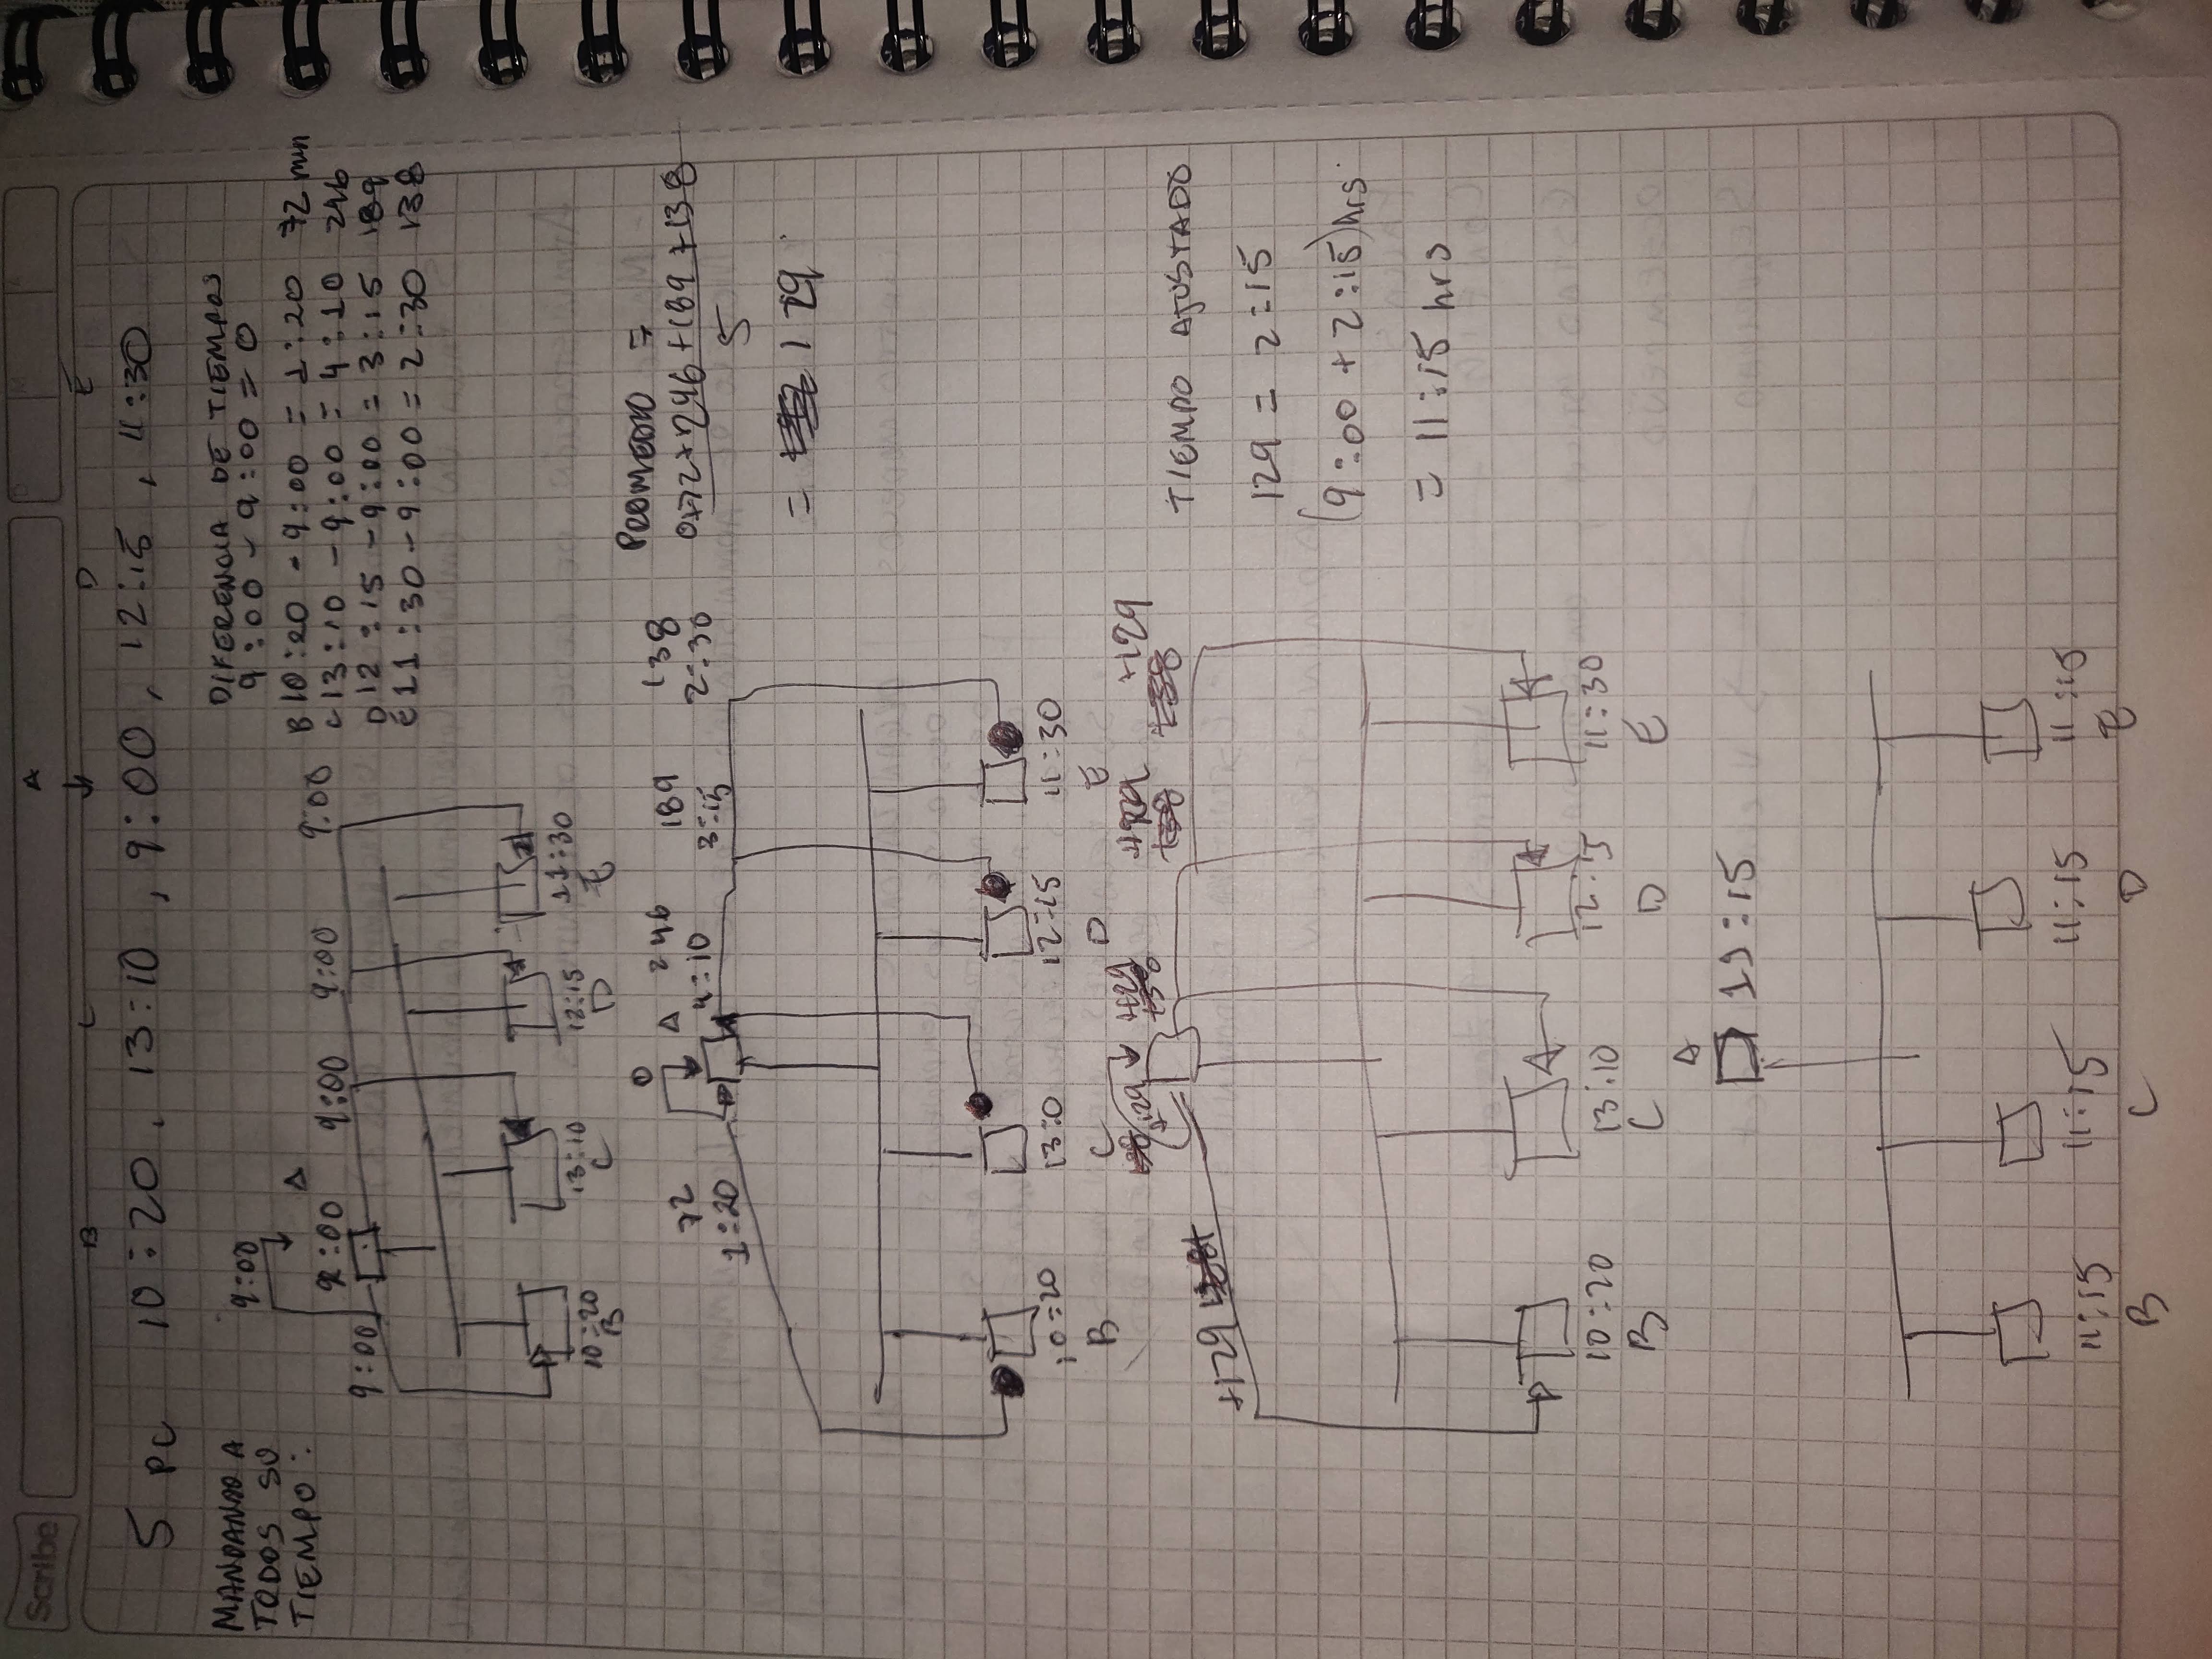 Scribe
A
B C D E
5 PC 10:20, 13:10, 9:00, 12:15, 11:30
MANDANDO A
TODOS SU
TIEMPO:
9:00
A
9:00 9:00 9:00 9:00 9:00
10:20 13:10 12:15 11:30
B C D E
DIFERENCIA DE TIEMPOS
9:00 - 9:00 = 0
B 10:20 - 9:00 = 1:20 72 min
C 13:10 - 9:00 = 4:10 246
D 12:15 - 9:00 = 3:15 189
E 11:30 - 9:00 = 2:30 138
0 A
72 246 189 138
1:20 4:10 3:15 2:30
10:20 13:0 12:15 11:30
B C D E
PROMEDIO =
0+72+246+189+138
5
= 129
+129 +129 +129 +129
+129
10:20 13:10 12:15 11:30
B C D E
TIEMPO AJUSTADO
129 = 2:15
(9:00 + 2:15) hrs
= 11:15 hrs
A
11:15
11:15 11:15 11:15 11:15
B C D E